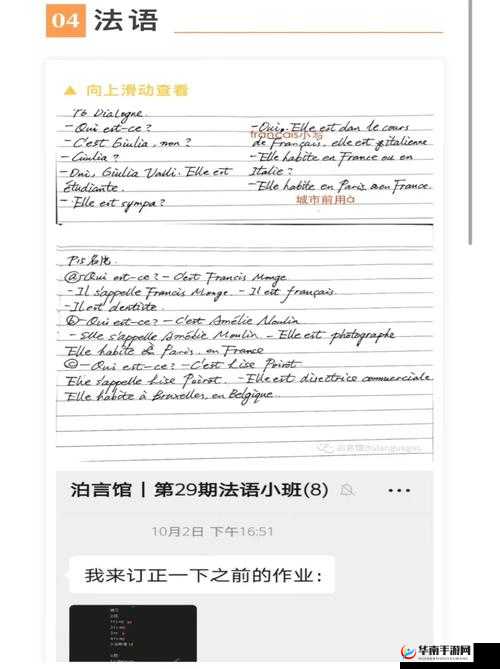 04 法语
▲ 向上滑动查看
T6 Dialogne.
- Qui est-ce?
- C'est Giulia, non?
- Giulia?
- Oui, Giulia Valli. Elle est
étudiante.
- Elle est sympa?
- Oui. Elle est dan le cours
français小写
de Français, elle est italienne
- Elle habite en France ou en
Italie?
- Elle habite en Paris, en France.
城市前用à
P15
ⓐ-Qui est-ce? - C'est Francis Monge
- Il s'appelle Francis Monge. - Il est français.
- Il est dentiste.
ⓑ-Qui est-ce? - C'est Amélie Moulin
- Elle s'appelle Amélie Moulin - Elle est photographe
Elle habite à Paris, en France
ⓒ-Qui est-ce? - C'est Lise Poirot
Elle s'appelle Lise Poirot. - Elle est directrice commerciale
Elle habite à Bruxelles, en Belgique.
泊言馆 | 第29期法语小班(8)
10月2日 下午16:51
我来订正一下之前的作业:
华南手游网